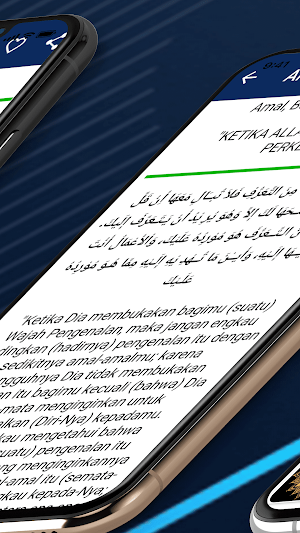 9:41
Amal, B
"KETIKA ALLA
PERKE
مِنَ التَّعَرُّفِ فَلَا تُبَالِ مَعَهَا أَنْ قَلَّ
لَكَ إِلَّا وَهُوَ يُرِيْدُ أَنْ يَتَعَرَّفَ إِلَيْكَ،
التَّعَرُّفَ هُوَ مُوْرِدُهُ عَلَيْكَ، وَالْأَعْمَالُ أَنْتَ
إِلَيْهِ، وَأَيْنَ مَا تُهْدِيْهِ إِلَيْهِ مِمَّا هُوَ مُوْرِدُهُ
عَلَيْكَ
"Ketika Dia membukakan bagimu (suatu)
Wajah Pengenalan, maka jangan engkau
dingkan (hadirnya) pengenalan itu dengan
sedikitnya amal-amalmu; karena
ngguhnya Dia tidak membukakan
an itu bagimu kecuali (bahwa) Dia
mata menginginkan untuk
alkan (Diri-Nya) kepadamu.
kau mengetahui bahwa
pengenalan itu
ng menginginkannya
l-amal itu (semata-
gkau kepada-Nya;